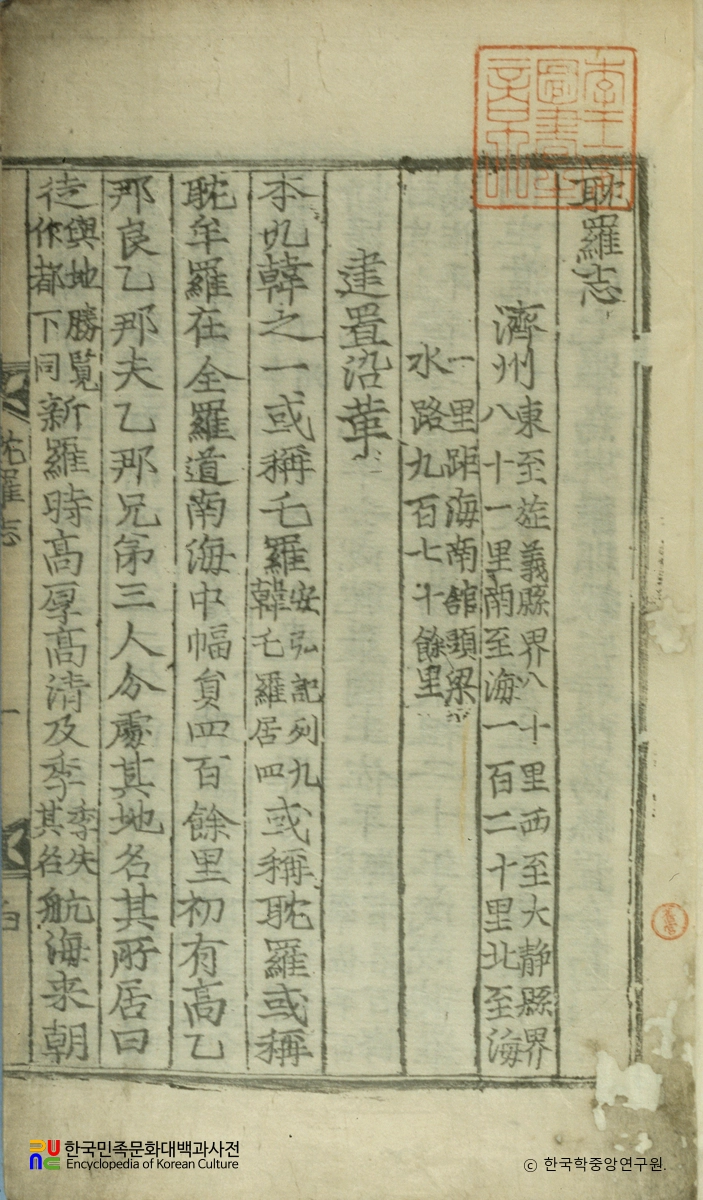 耽羅志
濟州東至旌義縣界八十里西至大静縣界八十一里南至海一百二十里北至海
一里距海南館頭梁水路九百七十餘里
建置沿革
本九韓之一或稱乇羅安弘記列九韓乇羅居四或稱耽羅或稱
耽牟羅在全羅道南海中幅員四百餘里初有高乙
那良乙那夫乙那兄弟三人分處其地名其所居曰
徒輿地勝覽作都下同新羅時高厚高清及季季失其名航海来朝
耽羅志 一
한국민족문화대백과사전
Encyclopedia of Korean Culture
© 한국학중앙연구원.